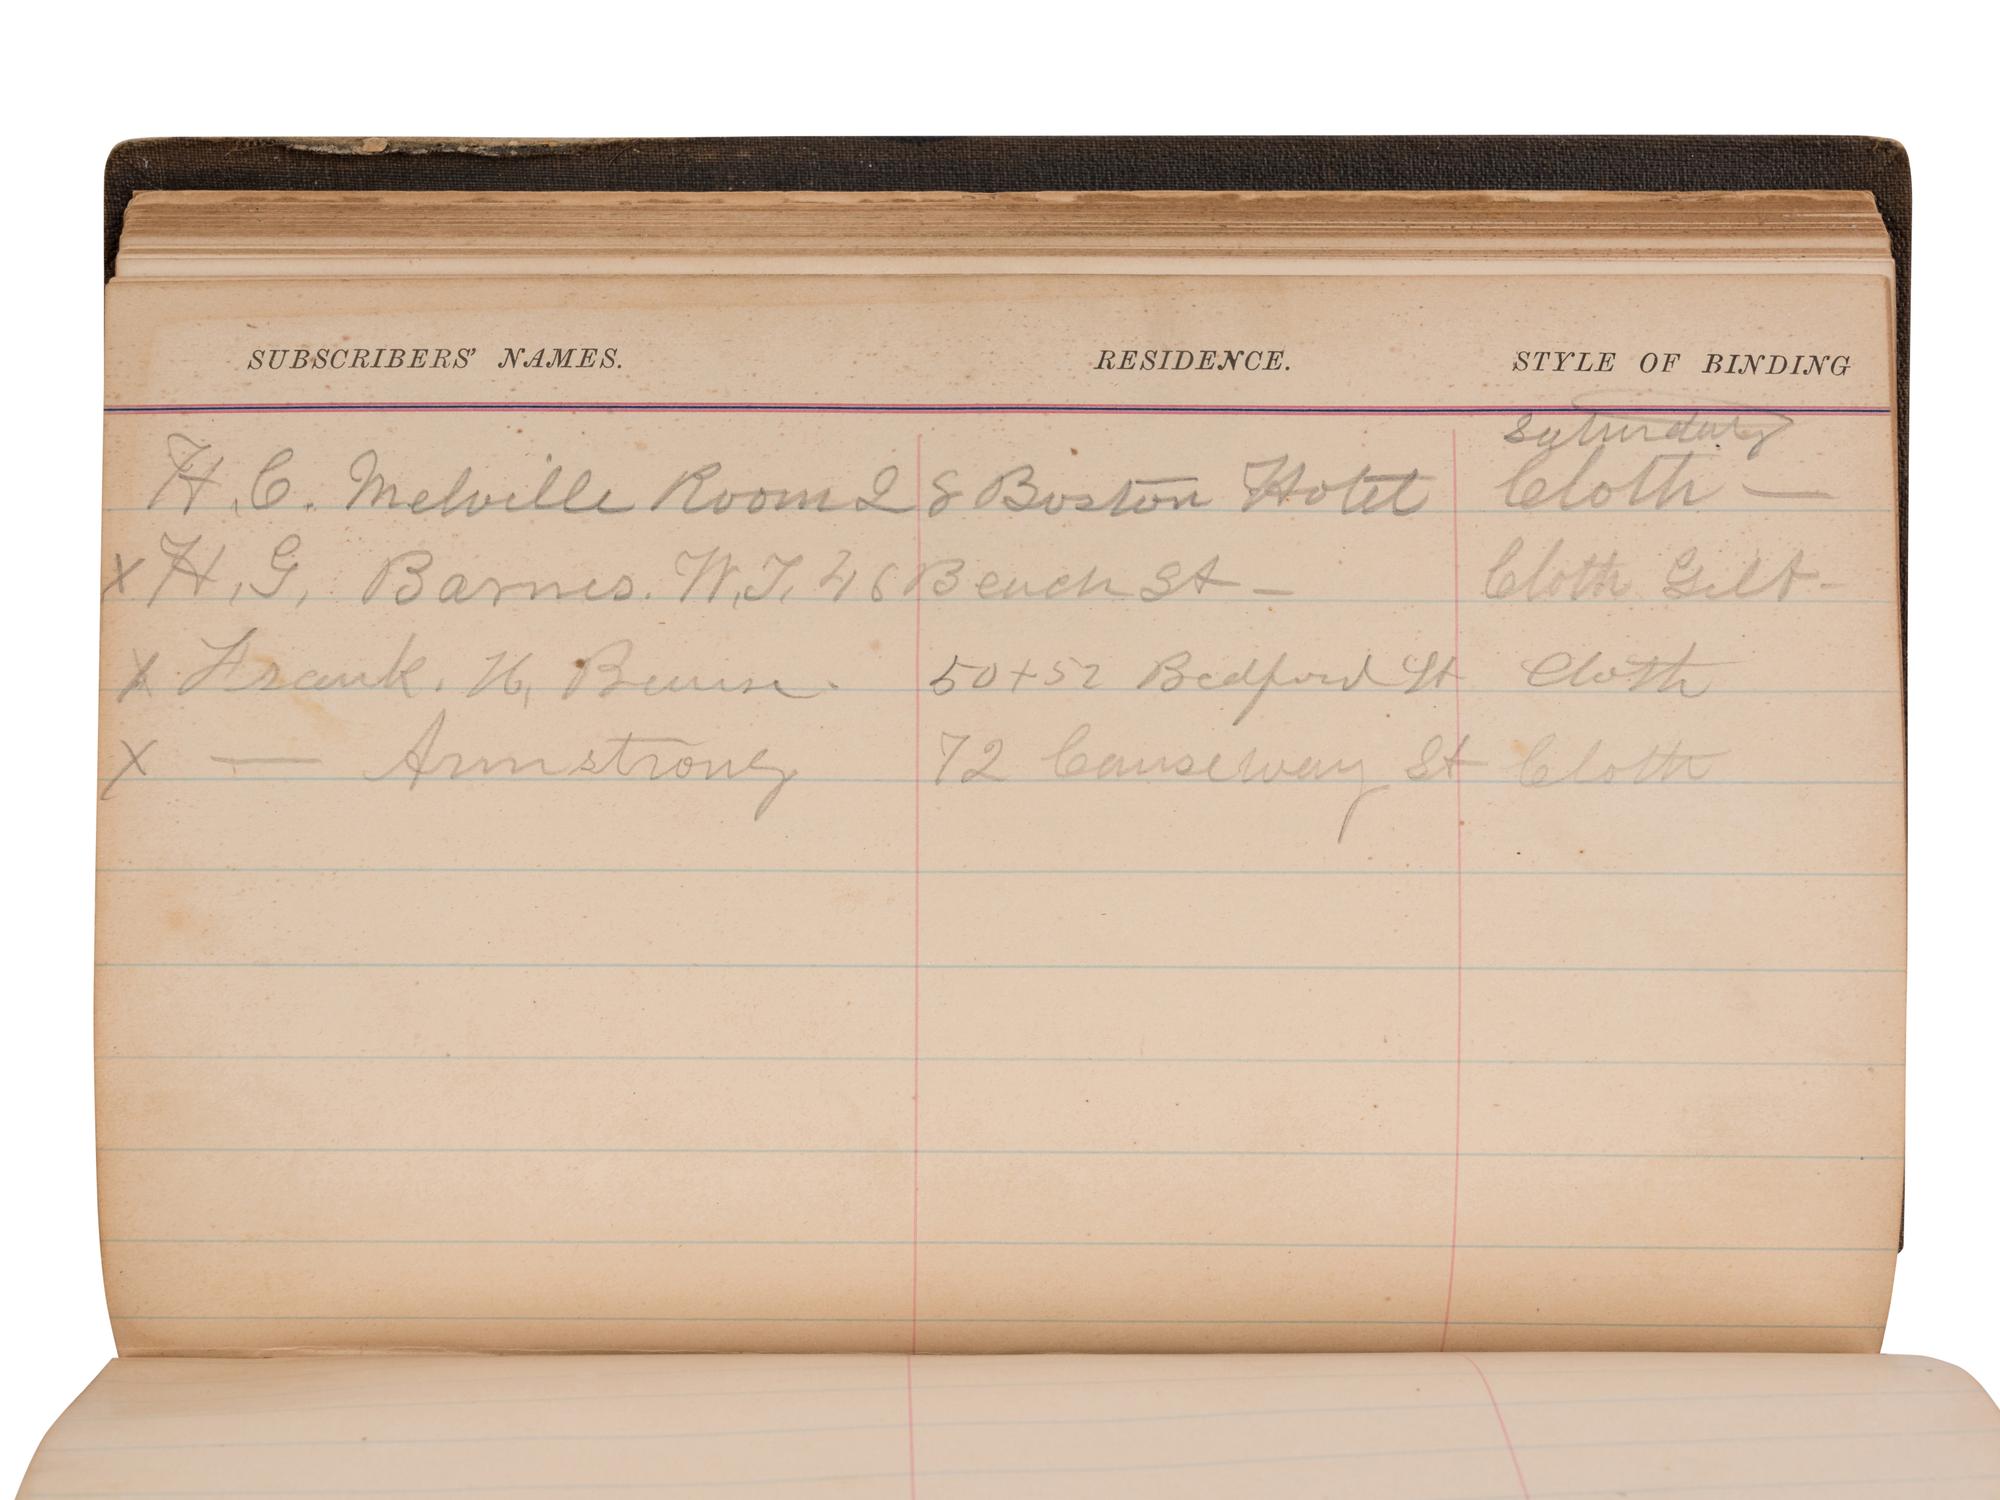 SUBSCRIBERS' NAMES. RESIDENCE. STYLE OF BINDING
Saturday
H. C. Melville Room 28 Boston Hotel Cloth —
x H. G. Barnes. W. T. 46 Beach St — Cloth Gilt -
x Frank. H, 50+52 Bedford St Cloth
x — Armstrong 72 Causeway St Cloth